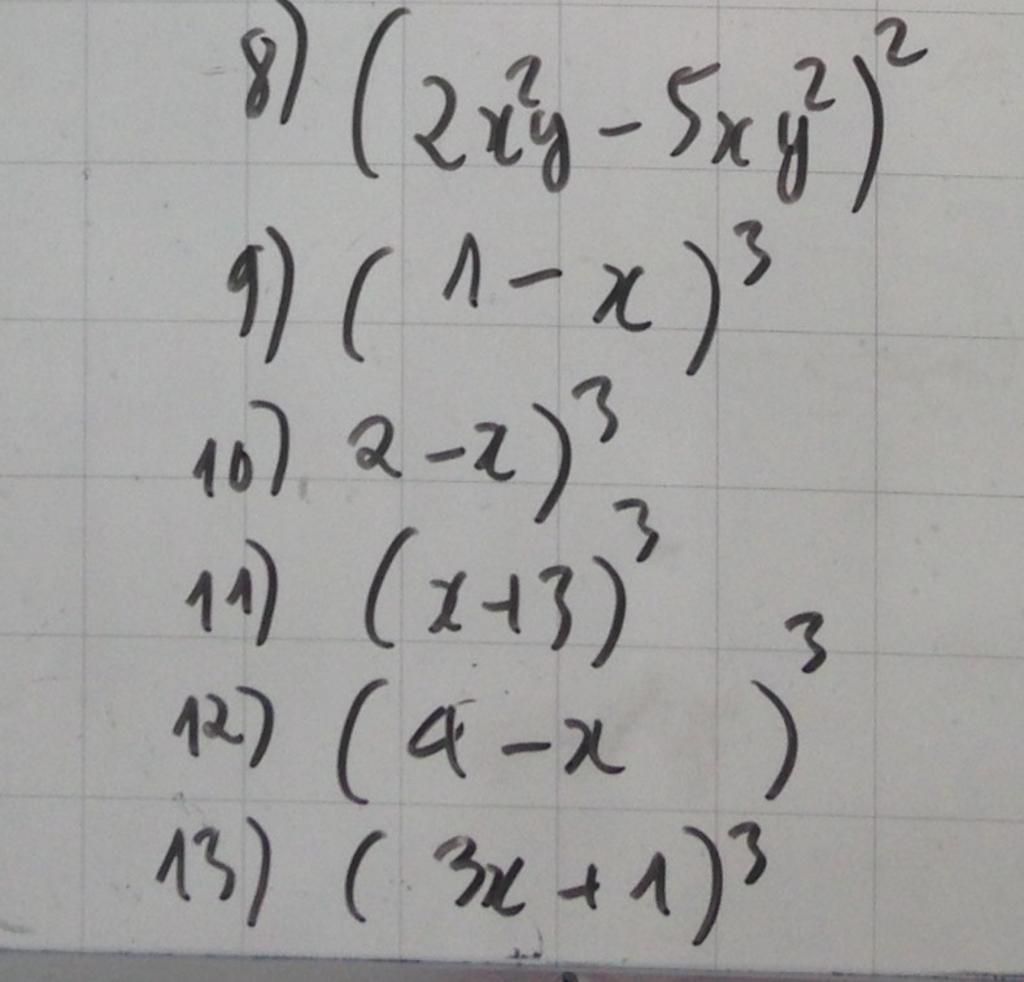 8) (2x²y - 5xy²)²
9) (1 - x)³
10) 2 - x)³
11) (x + 3)³
12) (4 - x )³
13) (3x + 1)³